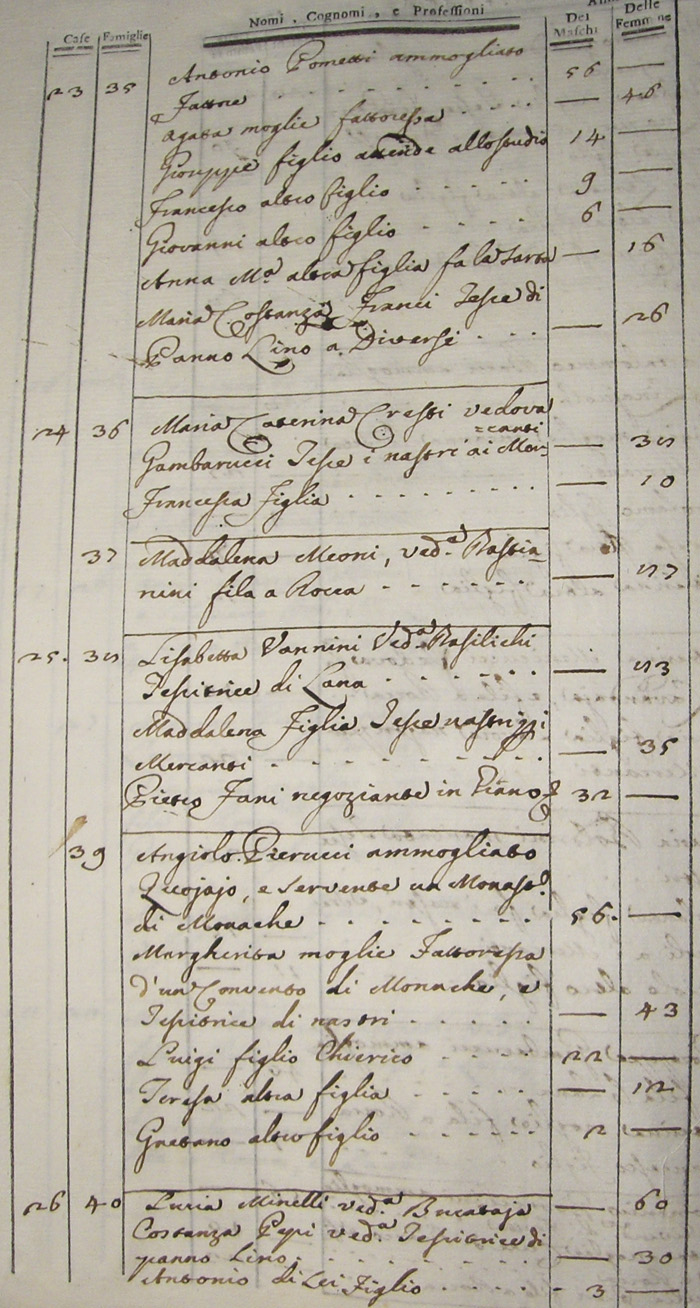 Case Famiglie Nomi, Cognomi, e Professioni Dei Maschi Delle Femmine
23 35 Antonio Pometti ammogliato 56 —
Fattore — 46
Agata moglie fattoressa
Giuseppe figlio attende allo studio 14 —
Francesco altro figlio 9 —
Giovanni altro figlio 6 —
Anna Ma. altra figlia fa la Sarta — 16
Maria Costanza Franci Tesse di
Panno Lino a Diversi — 26
24 36 Maria Caterina Cresti vedova
=canti
Gambarucci Tesse i nastri ai Mer- —
Francesca figlia — 10
37 Maddalena Meoni, ved.a Bastia-
nini fila a Rocca —
25. Lisabetta Vannini Ved.a Basilichi
Tessitrice di Lana —
Maddalena Figlia Tesse nastri
Mercanti — 35
Pietro Fani negoziante in 32 —
39 Angiolo Pierucci ammogliato
Quojajo, e Servente un Monast.o
di Monache 56. —
Margherita moglie Fattoressa
d'un Convento di Monache, e
Tessitrice di nastri — 43
Luigi figlio Chierico 22 —
Teresa altra figlia — 12
Gaetano altro figlio 2 —
26 40 Lucia Minelli ved.a Bucataja — 60
Costanza Pepi ved.a Tessitrice di
panno Lino — 30
Antonio di Lei Figlio 3 —